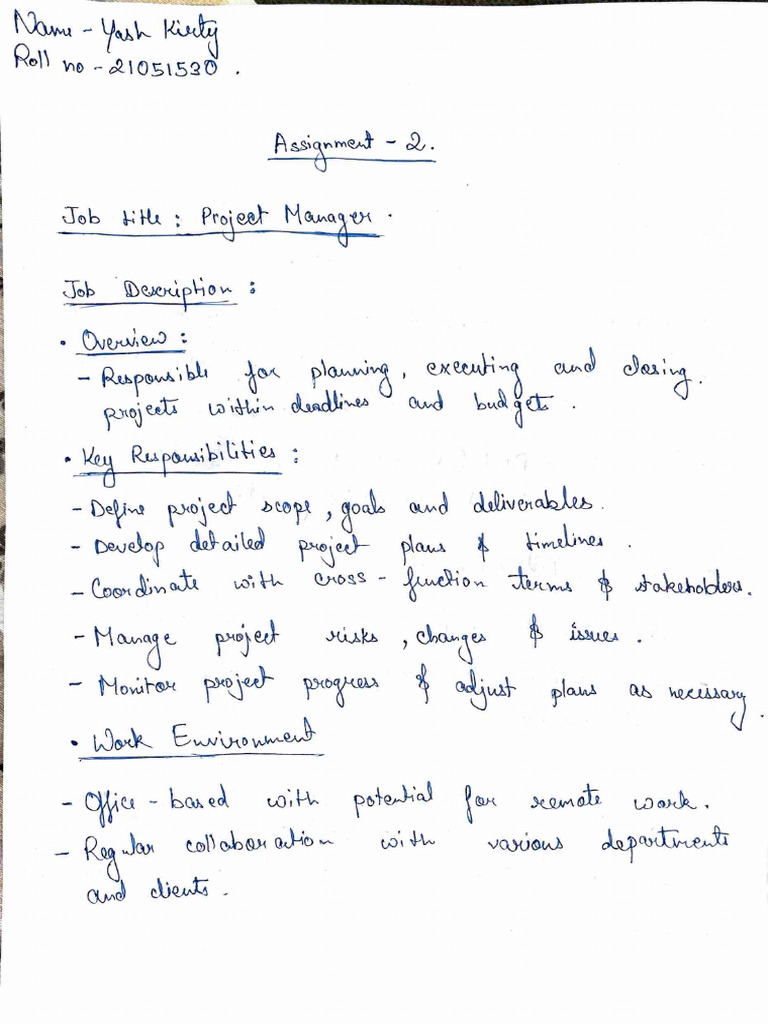 Name - Yash Kirty
Roll no - 21051530 .
Assignment - 2.
Job title : Project Manager .
Job Description :
• Overview :
- Responsible for planning, executing and closing.
projects within deadlines and budgets .
• Key Responsibilities :
- Define project scope, goals and deliverables.
- Develop detailed project plans & timelines .
- Coordinate with cross - function terms & stakeholders.
- Manage project risks, changes & issues .
- Monitor project progress & adjust plans as necessary.
• Work Environment
- Office - based with potential for remote work.
- Regular collaboration with various departments
and clients .